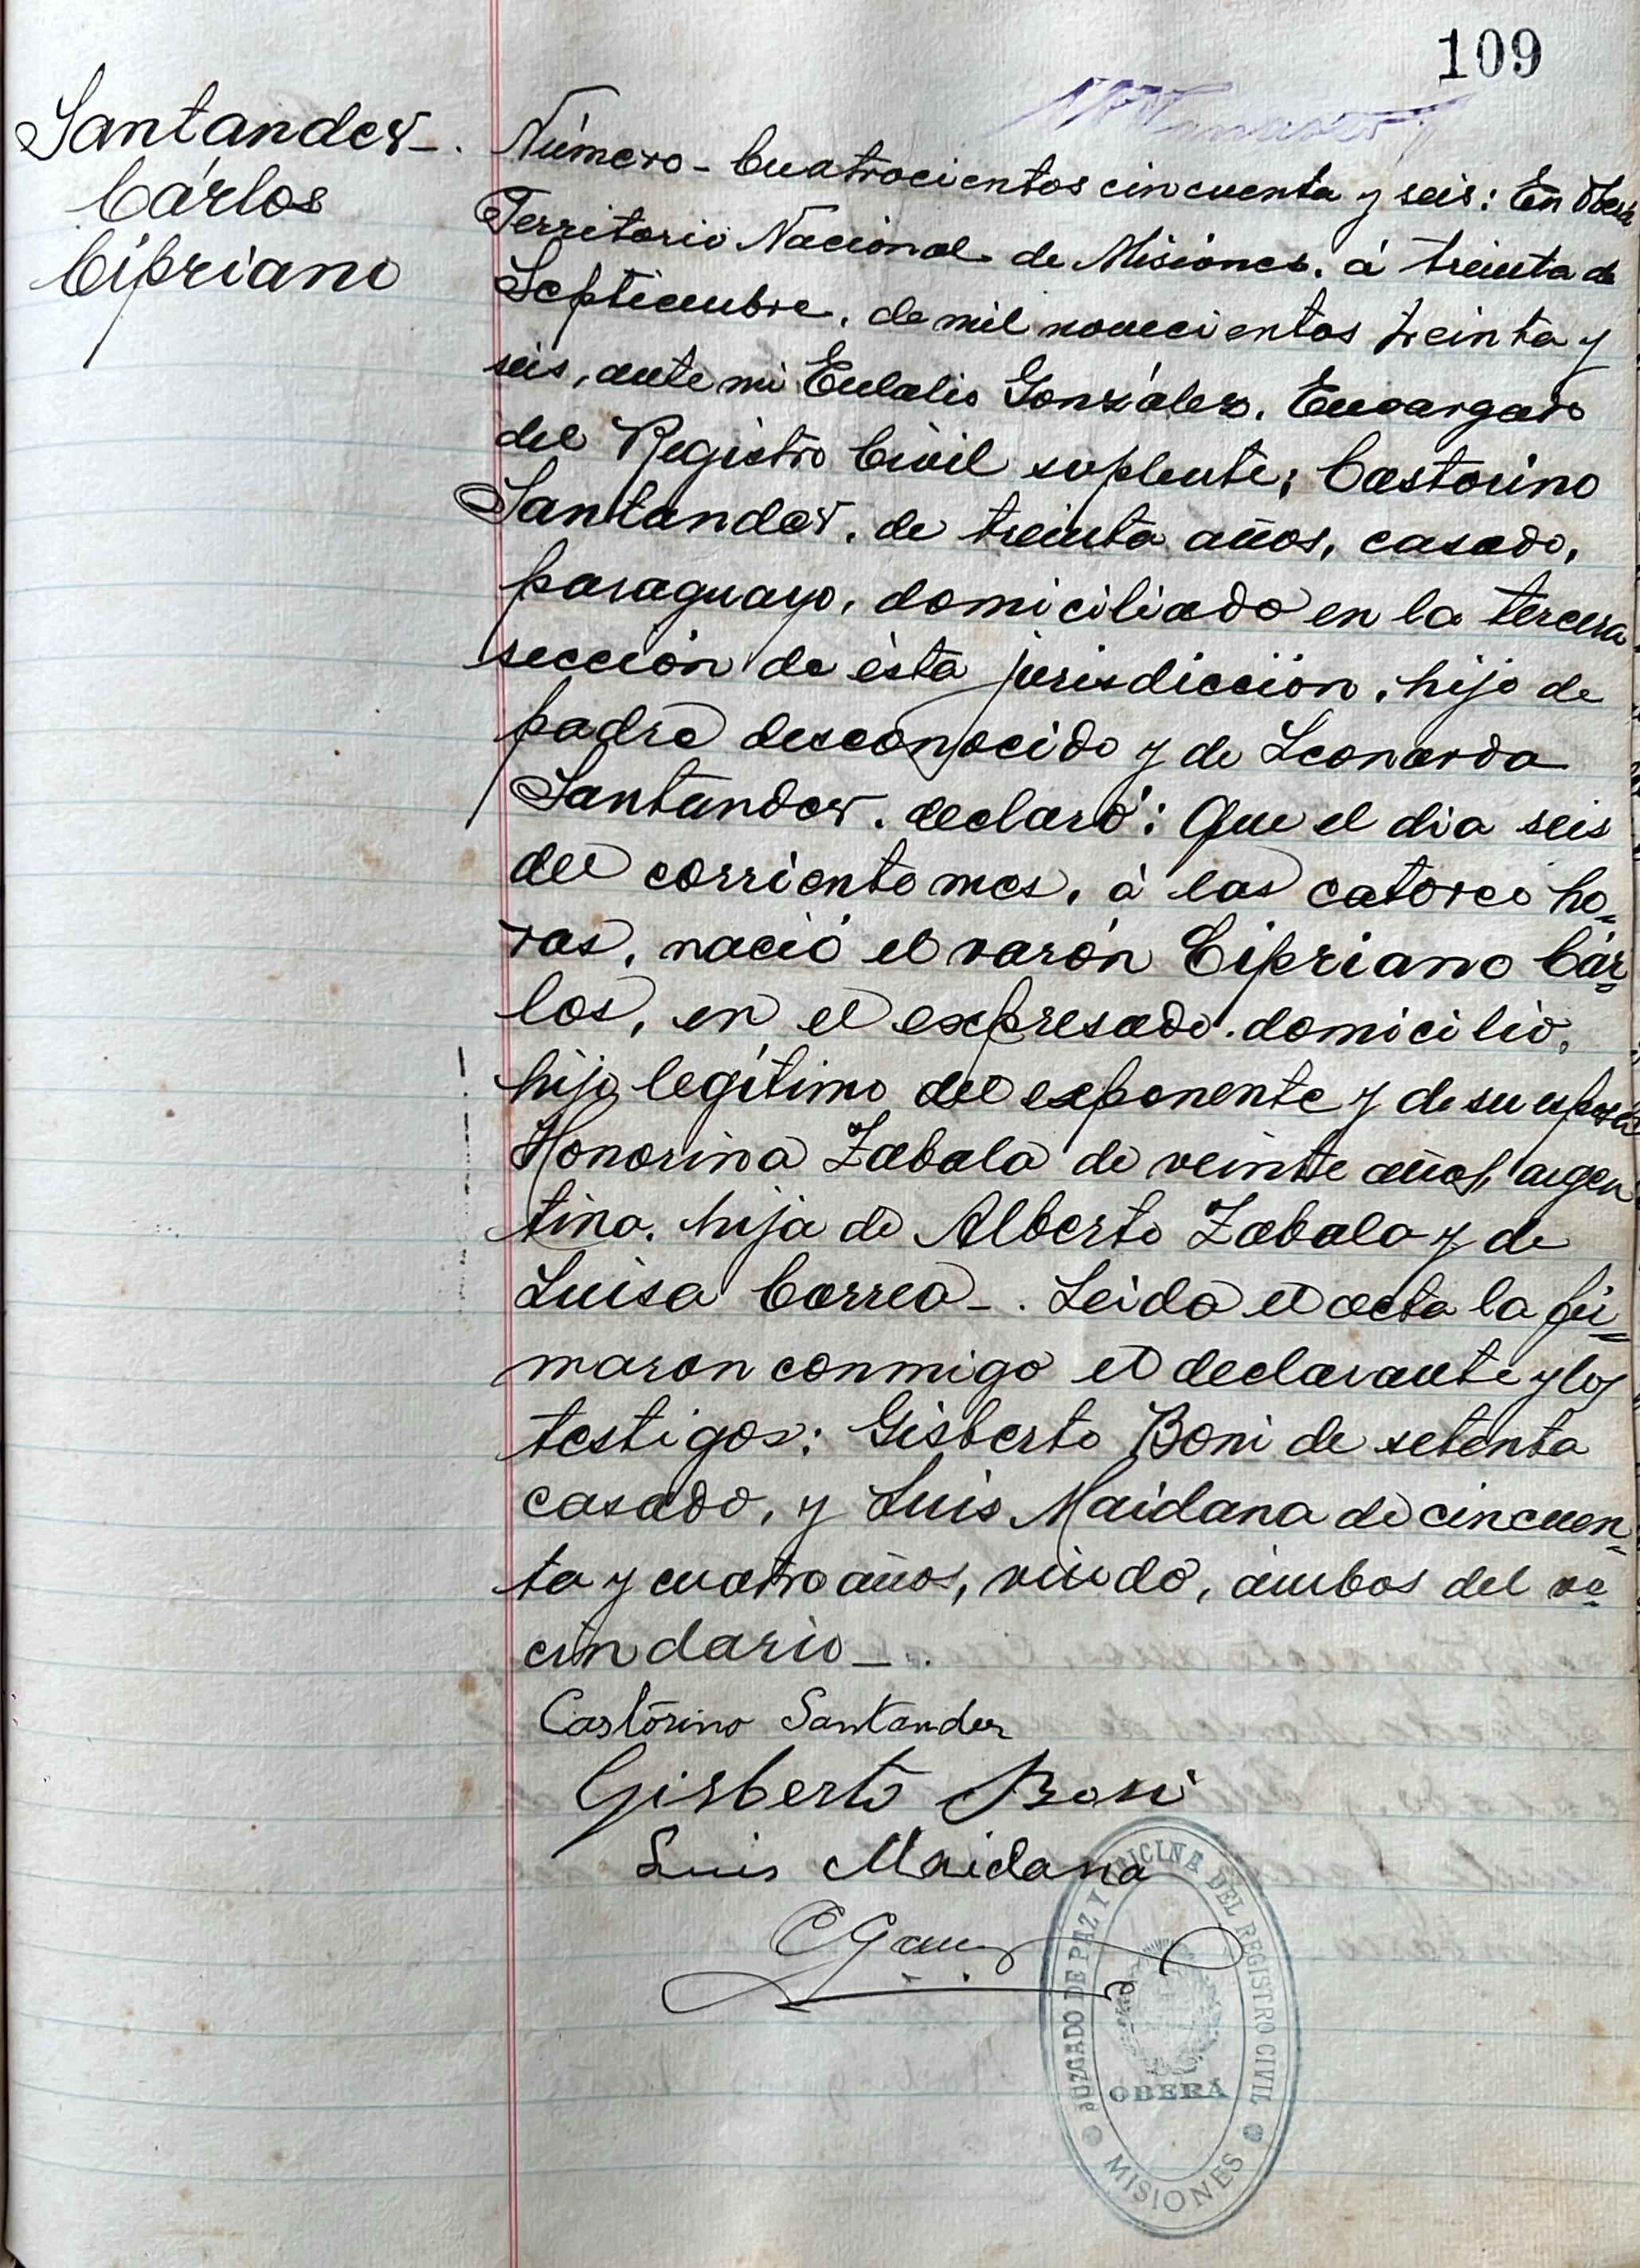 109
Santander_.
Cárlos
Cipriano
Número - Cuatrocientos cincuenta y seis: En Oberá
Territorio Nacional de Misiones, á treinta de
Septiembre, de mil novecientos treinta y
seis, ante mi Eulalio González, Encargado
del Registro Civil suplente; Castorino
Santander, de treinta años, casado,
paraguayo, domiciliado en la tercera
sección de ésta jurisdicción, hijo de
padre desconocido y de Leonarda
Santander, declaró: Que el dia seis
del corriente mes, á las catorce ho=
ras, nació el varón Cipriano Cár=
los, en el expresado domicilio,
hijo legítimo del exponente y de su esposa
Honorina Zabala de veinte años, argen
tina, hija de Alberto Zabala y de
Luisa Correa_. Leida el acta la fir=
maron conmigo el declarante y los
testigos: Gisberto Boni de setenta
casado, y Luis Maidana de cincuen=
ta y cuatro años, viudo, ámbos del ve=
cindario_.
Castorino Santander
Gisberto Boni
Luis Maidana
JUZGADO DE PAZ I OFICINA DEL REGISTRO CIVIL
OBERÁ
MISIONES